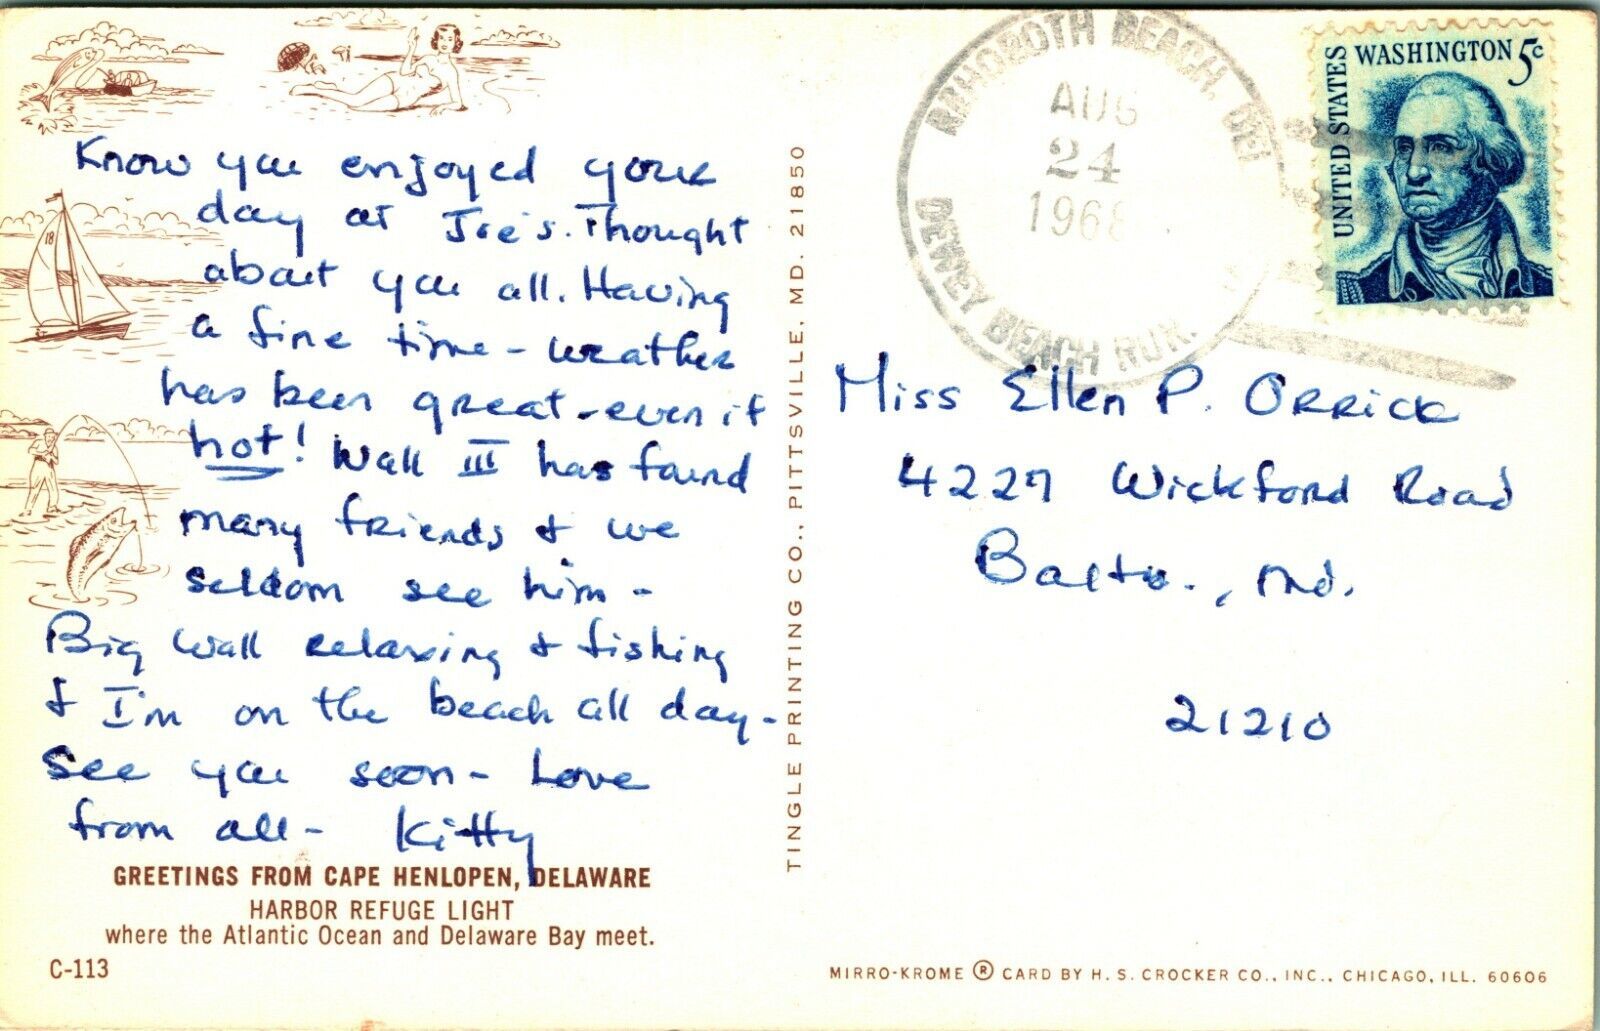 Know you enjoyed your
day at Joe's. Thought
about you all. Having
a fine time - weather
has been great - even if
hot! Wall III has found
many friends & we
seldom see him -
Big Wall relaxing & fishing
& I'm on the beach all day -
See you soon - Love
from all - Kitty
GREETINGS FROM CAPE HENLOPEN, DELAWARE
HARBOR REFUGE LIGHT
where the Atlantic Ocean and Delaware Bay meet.
C-113
18
TINGLE PRINTING CO., PITTSVILLE, MD. 21850
BEACH, DEL
AUG
24
1968
DEWEY BEACH RUR.
UNITED STATES
WASHINGTON 5c
Miss Ellen P. Orrick
4227 Wickford Road
Balto., Md.
21210
MIRRO-KROME ® CARD BY H. S. CROCKER CO., INC., CHICAGO, ILL. 60606